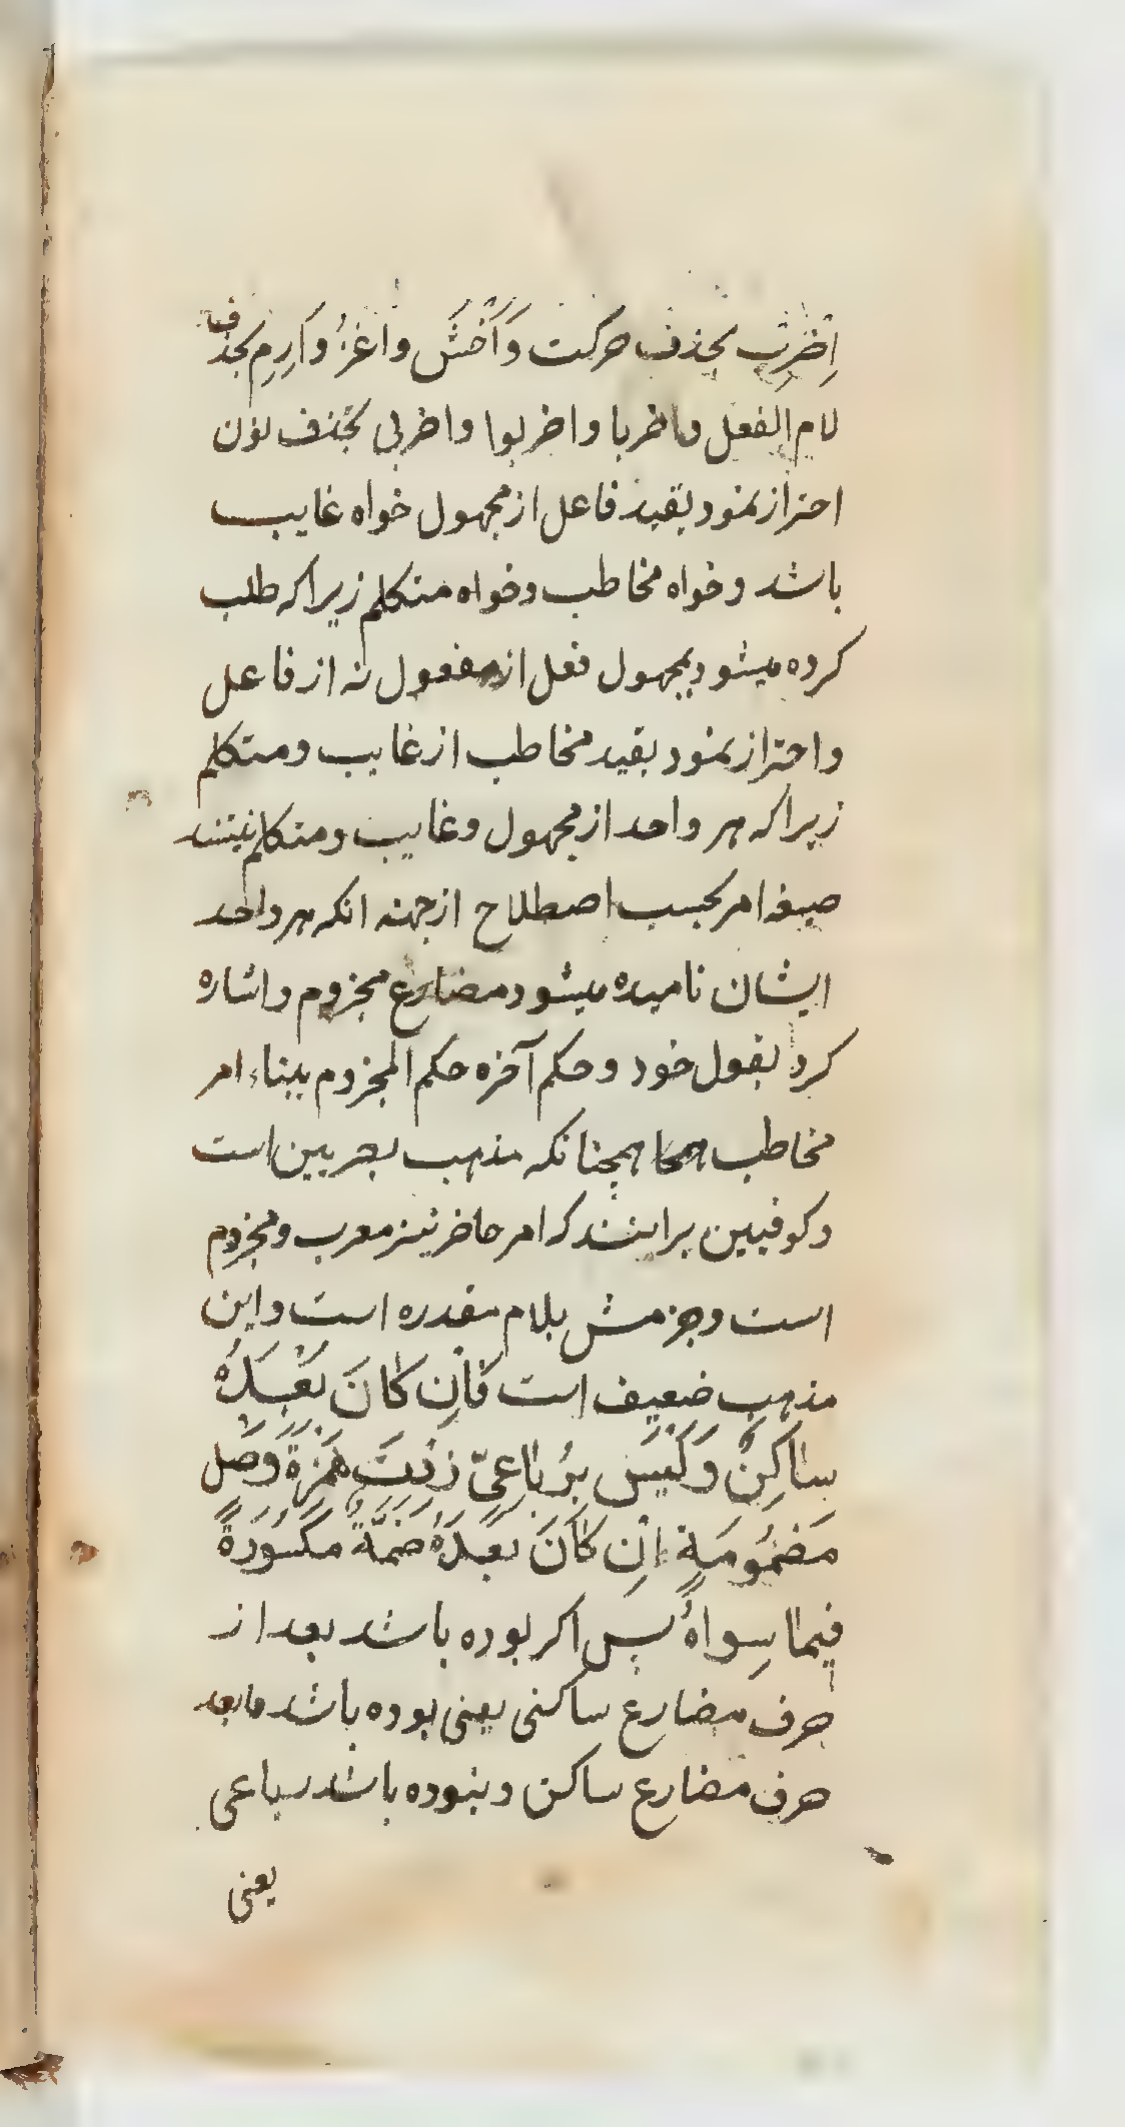 اِضْرِبْ بحذف حرکت وَاَخْشَ واغزُ واَرِمِ بحذف
لام الفعل واضربا واضربوا واضربی بحذف نون
احتراز نمود بقید فاعل از مجهول خواه غایب
باشد وخواه مخاطب وخواه متکلم زیرا که طلب
کرده میشود بمجهول فعل از مفعول نه از فاعل
واحتراز نمود بقید مخاطب از غایب ومتکلم
زیرا که هر واحد از مجهول وغایب ومتکلم نیستند
صیغه امر بحسب اصطلاح ازجهته انکه هر واحد
ایشان نامیده میشود مضارع مجزوم واشاره
کرد بقول خود وحکم آخره حکم المجزوم ببناء امر
مخاطب همچنانکه مذهب بصریین است
وکوفیین برانند که امر حاضر نیز معرب ومجزوم
است وجزمش بلام مقدره است واین
مذهب ضعیف است فَاِن کٰانَ بَعْدَهُ
سٰاکِنٌ وَلَیْسَ بِرُبٰاعِیّ زِدْتَ هَمْزَةَ وَصْلٍ
مَضْمُومَةٍ اِن کٰانَ بَعْدَهُ ضَمَّةٌ مَکْسُورَةً
فیمٰا سِواهُ پس اکر بوده باشد بعد از
حرف مضارع ساکنی یعنی بوده باشد مابعد
حرف مضارع ساکن ونبوده باشد رباعی
یعنی